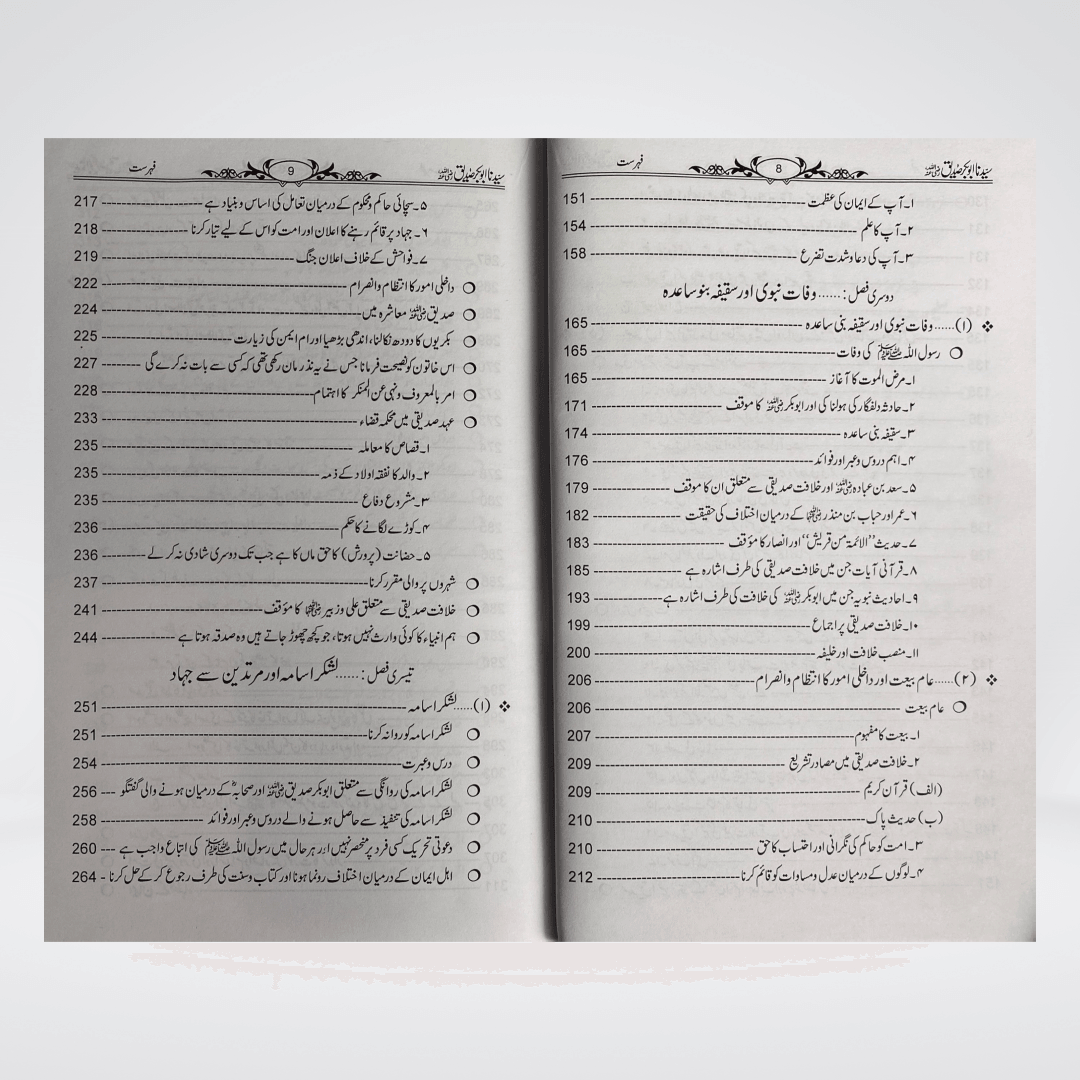 سیدنا ابوبکر صدیق رضی اللہ عنہ 8 فہرست
۱۔ آپ کے ایمان کی عظمت 151
۲۔ آپ کا علم 154
۳۔ آپ کی دعا وشدت تضرع 158
دوسری فصل: ...... وفات نبوی اور سقیفہ بنو ساعدہ
(۱)...... وفات نبوی اور سقیفہ بنی ساعدہ 165
رسول اللہ ﷺ کی وفات 165
۱۔ مرض الموت کا آغاز 165
۲۔ حادثہ دلفگار کی ہولنا کی اور ابوبکر رضی اللہ عنہ کا موقف 171
۳۔ سقیفہ بنی ساعدہ 174
۴۔ اہم دروس وعبر اور فوائد 176
۵۔ سعد بن عبادہ رضی اللہ عنہ اور خلافت صدیقی سے متعلق ان کا موقف 179
۶۔ عمر اور حباب بن منذر رضی اللہ عنہما کے درمیان اختلاف کی حقیقت 182
۷۔ حدیث ’’الائمۃ من قریش‘‘ اور انصار کا مؤقف 183
۸۔ قرآنی آیات جن میں خلافت صدیقی کی طرف اشارہ ہے 185
۹۔ احادیث نبویہ جن میں ابوبکر رضی اللہ عنہ کی خلافت کی طرف اشارہ ہے 193
۱۰۔ خلافت صدیقی پر اجماع 199
۱۱۔ منصب خلافت اور خلیفہ 200
(۲)...... عام بیعت اور داخلی امور کا انتظام وانصرام 206
عام بیعت 206
۱۔ بیعت کا مفہوم 207
۲۔ خلافت صدیقی میں مصادر تشریع 209
(الف) قرآن کریم 209
(ب) حدیث پاک 210
۳۔ امت کو حاکم کی نگرانی اور احتساب کا حق 210
۴۔ لوگوں کے درمیان عدل ومساوات کو قائم کرنا 212
سیدنا ابوبکر صدیق رضی اللہ عنہ 9 فہرست
۵۔ سچائی حاکم ومحکوم کے درمیان تعامل کی اساس و بنیاد ہے 217
۶۔ جہاد پر قائم رہنے کا اعلان اور امت کو اس کے لیے تیار کرنا 218
۷۔ فواحش کے خلاف اعلان جنگ 219
داخلی امور کا انتظام وانصرام 222
صدیق رضی اللہ عنہ معاشرہ میں 224
بکریوں کا دودھ نکالنا، اندھی بڑھیا اور ام ایمن کی زیارت 225
اس خاتون کو نصیحت فرمانا جس نے یہ نذر مان رکھی تھی کہ کسی سے بات نہ کرے گی 227
امر بالمعروف ونہی عن المنکر کا اہتمام 228
عہد صدیقی میں محکمہ قضاء 233
۱۔ قصاص کا معاملہ 235
۲۔ والد کا نفقہ اولاد کے ذمہ 235
۳۔ مشروع دفاع 235
۴۔ کوڑے لگانے کا حکم 236
۵۔ حضانت (پرورش) کا حق ماں کا ہے جب تک دوسری شادی نہ کر لے 236
شہروں پر والی مقرر کرنا 237
خلافت صدیقی سے متعلق علی وزبیر رضی اللہ عنہما کا مؤقف 241
ہم انبیاء کا کوئی وارث نہیں ہوتا، جو کچھ چھوڑ جاتے ہیں وہ صدقہ ہوتا ہے 244
تیسری فصل: ...... لشکر اسامہ اور مرتدین سے جہاد
(۱)...... لشکر اسامہ 251
لشکر اسامہ کو روانہ کرنا 251
درس وعبرت 254
لشکر اسامہ کی روانگی سے متعلق ابوبکر صدیق رضی اللہ عنہ اور صحابہؓ کے درمیان ہونے والی گفتگو 256
لشکر اسامہ کی تنفیذ سے حاصل ہونے والے دروس وعبر اور فوائد 258
دعوتی تحریک کسی فرد پر منحصر نہیں اور ہر حال میں رسول اللہ ﷺ کی اتباع واجب ہے 260
اہل ایمان کے درمیان اختلاف رونما ہونا اور کتاب وسنت کی طرف رجوع کر کے حل کرنا 264